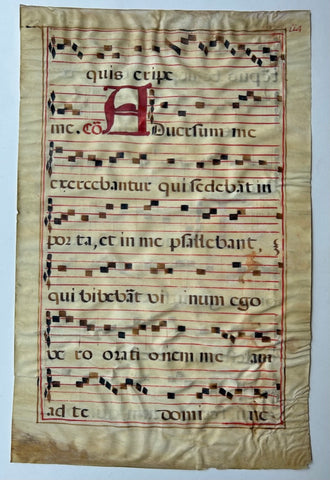 quis eripe
me. Cõ. ADuersum me
exercebantur qui sedebat in
por ta, et in me psallebant,
qui bibebãt vi num ego
ve ro orati o nem me am
ad te domi ne